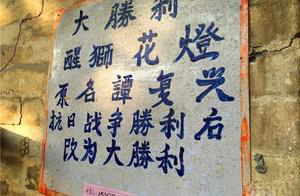 大勝利
醒獅花燈
原名譚复兴
抗日战争勝利后
改为大勝利